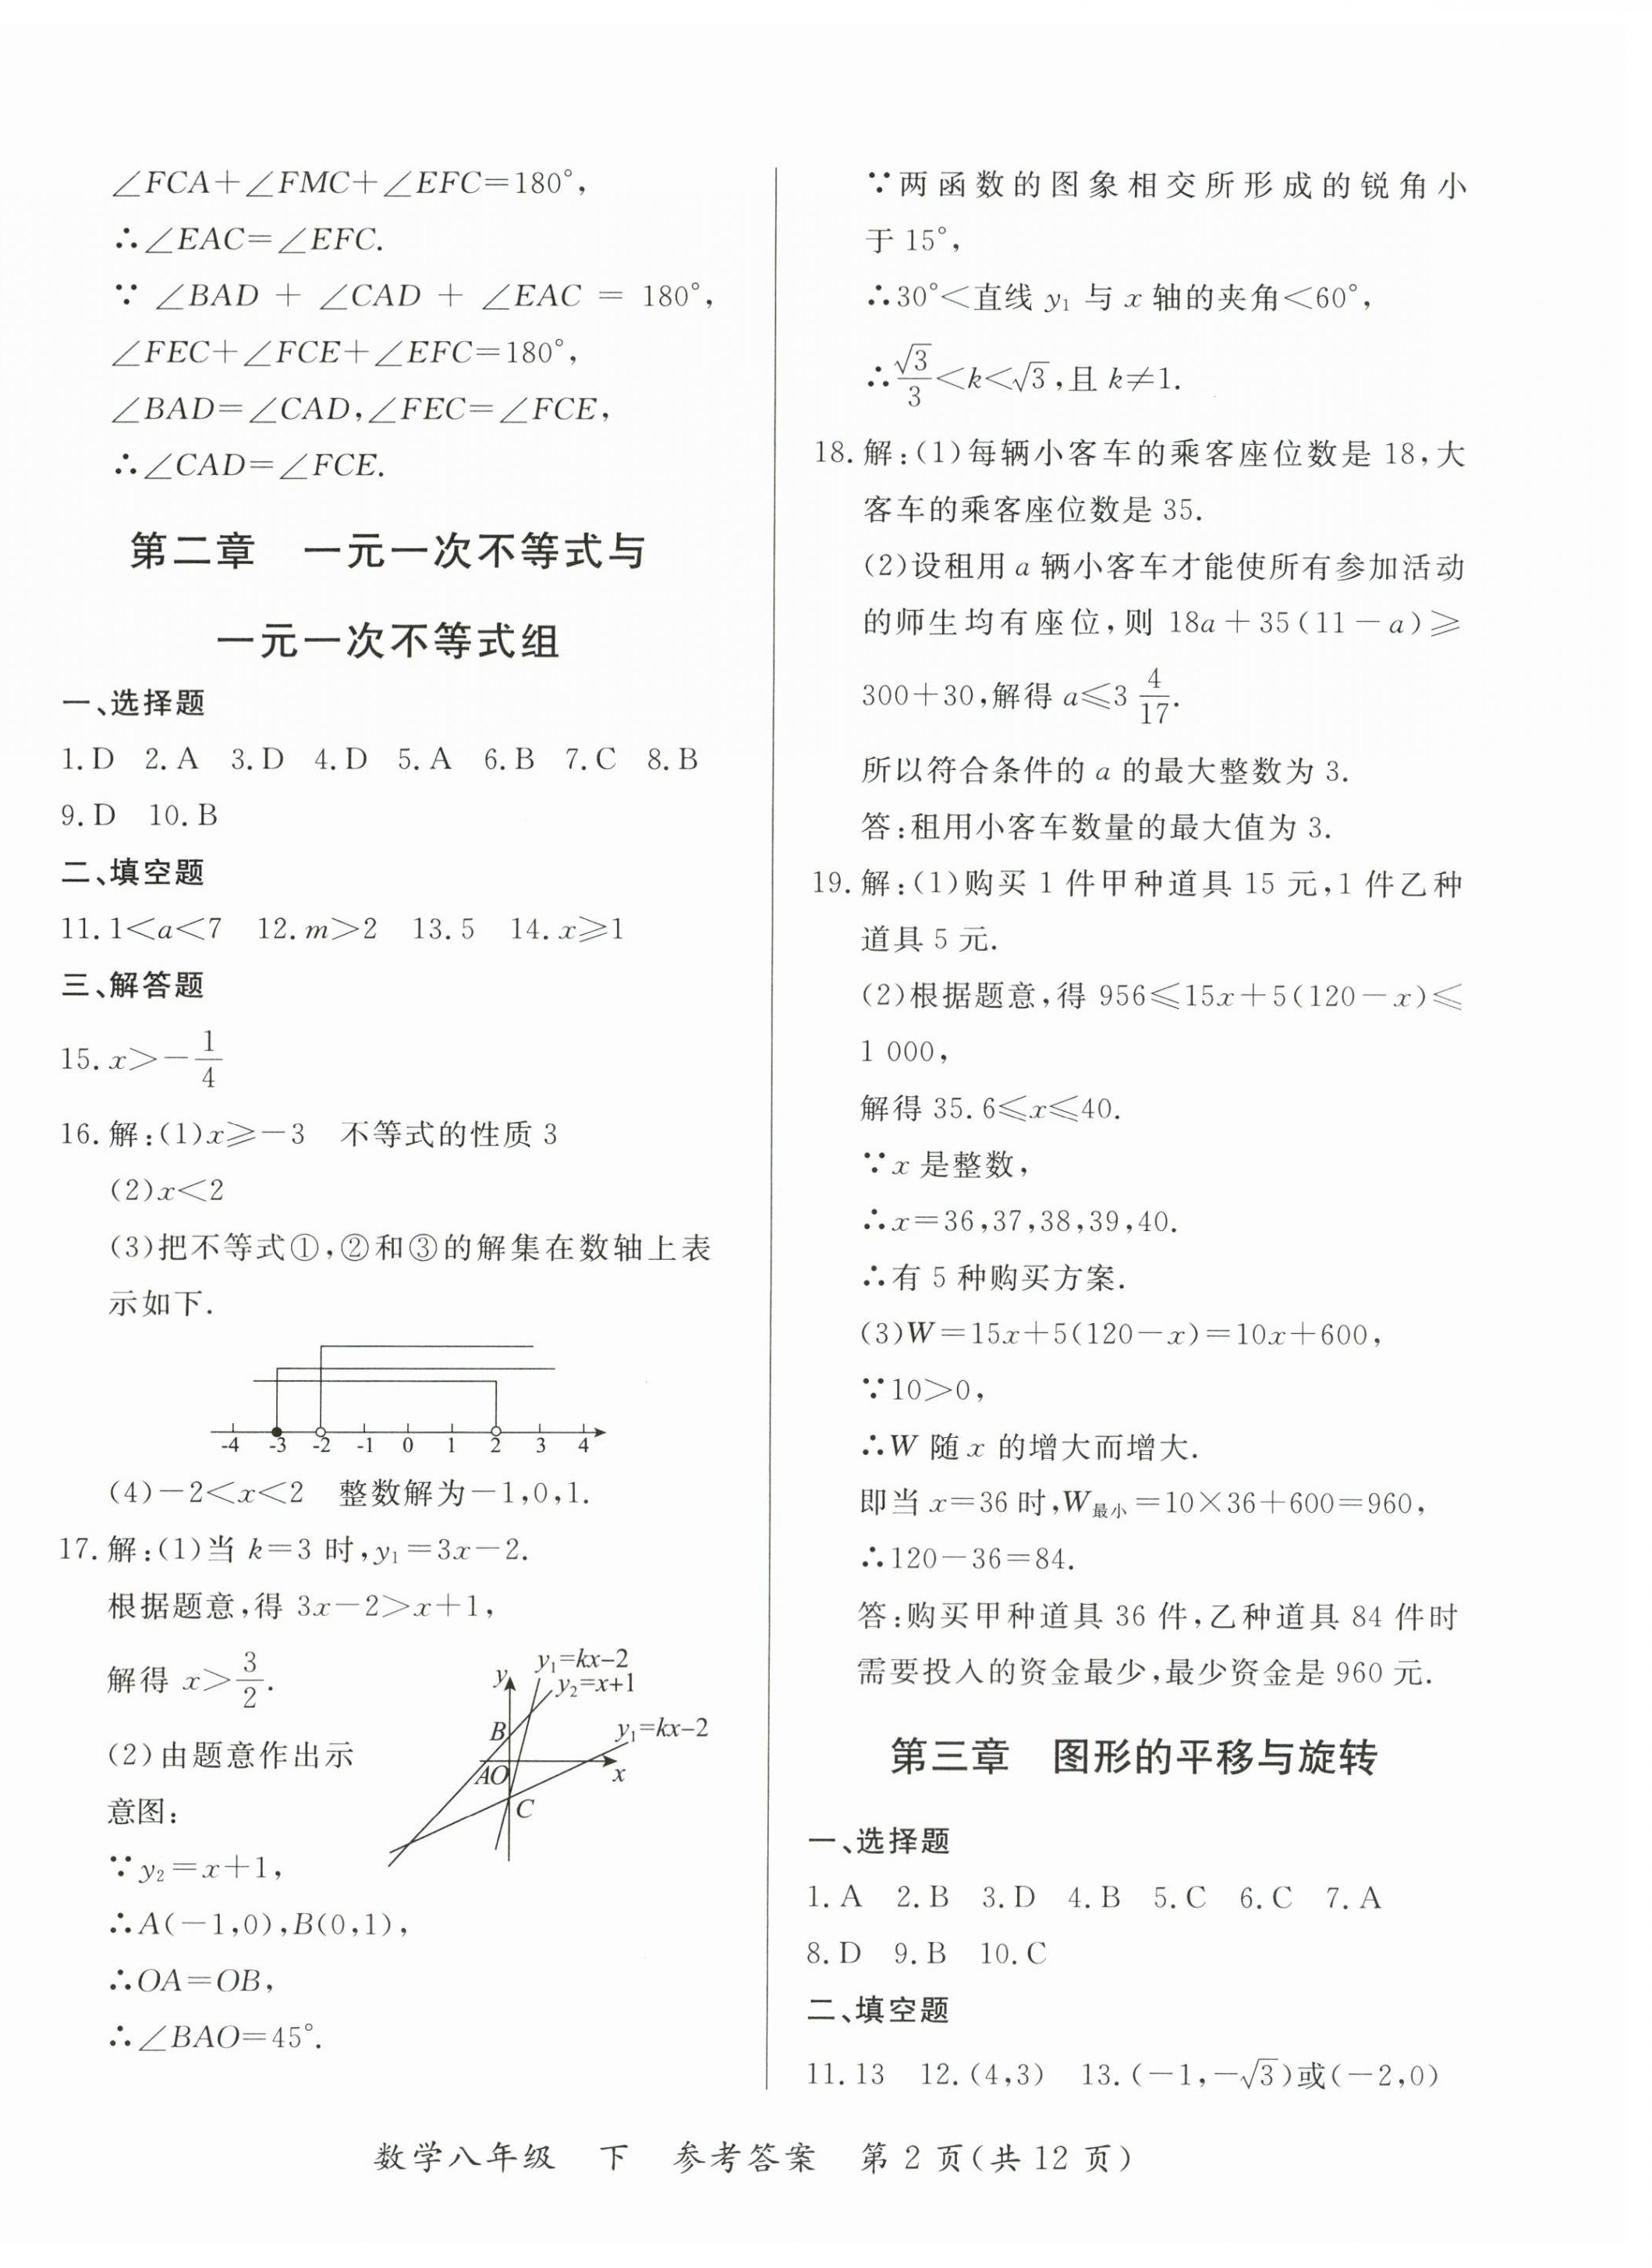 ∠FCA+∠FMC+∠EFC=180°,
∴∠EAC=∠EFC.
∵ ∠BAD + ∠CAD + ∠EAC = 180°,
∠FEC+∠FCE+∠EFC=180°,
∠BAD=∠CAD,∠FEC=∠FCE,
∴∠CAD=∠FCE.
第二章 一元一次不等式与
一元一次不等式组
一、选择题
1.D 2.A 3.D 4.D 5.A 6.B 7.C 8.B
9.D 10.B
二、填空题
11.1<a<7 12.m>2 13.5 14.x≥1
三、解答题
15.x>-1/4
16.解:(1)x≥-3 不等式的性质 3
(2)x<2
(3)把不等式①,②和③的解集在数轴上表
示如下.
-4 -3 -2 -1 0 1 2 3 4
(4)-2<x<2 整数解为-1,0,1.
17.解:(1)当 k=3 时,y₁=3x-2.
根据题意,得 3x-2>x+1,
解得 x>3/2.
(2)由题意作出示
意图:
y y₁=kx-2
y₂=x+1
B y₁=kx-2
A O x
C
∵y₂=x+1,
∴A(-1,0),B(0,1),
∴OA=OB,
∴∠BAO=45°.
∵两函数的图象相交所形成的锐角小
于 15°,
∴30°<直线 y₁ 与 x 轴的夹角<60°,
∴√3/3<k<√3,且 k≠1.
18.解:(1)每辆小客车的乘客座位数是 18,大
客车的乘客座位数是 35.
(2)设租用 a 辆小客车才能使所有参加活动
的师生均有座位,则 18a+35(11-a)≥
300+30,解得 a≤3 4/17.
所以符合条件的 a 的最大整数为 3.
答:租用小客车数量的最大值为 3.
19.解:(1)购买 1 件甲种道具 15 元,1 件乙种
道具 5 元.
(2)根据题意,得 956≤15x+5(120-x)≤
1 000,
解得 35.6≤x≤40.
∵x 是整数,
∴x=36,37,38,39,40.
∴有 5 种购买方案.
(3)W=15x+5(120-x)=10x+600,
∵10>0,
∴W 随 x 的增大而增大.
即当 x=36 时,W最小=10×36+600=960,
∴120-36=84.
答:购买甲种道具 36 件,乙种道具 84 件时
需要投入的资金最少,最少资金是 960 元.
第三章 图形的平移与旋转
一、选择题
1.A 2.B 3.D 4.B 5.C 6.C 7.A
8.D 9.B 10.C
二、填空题
11.13 12.(4,3) 13.(-1,-√3)或(-2,0)
数学八年级 下 参考答案 第 2 页(共 12 页)